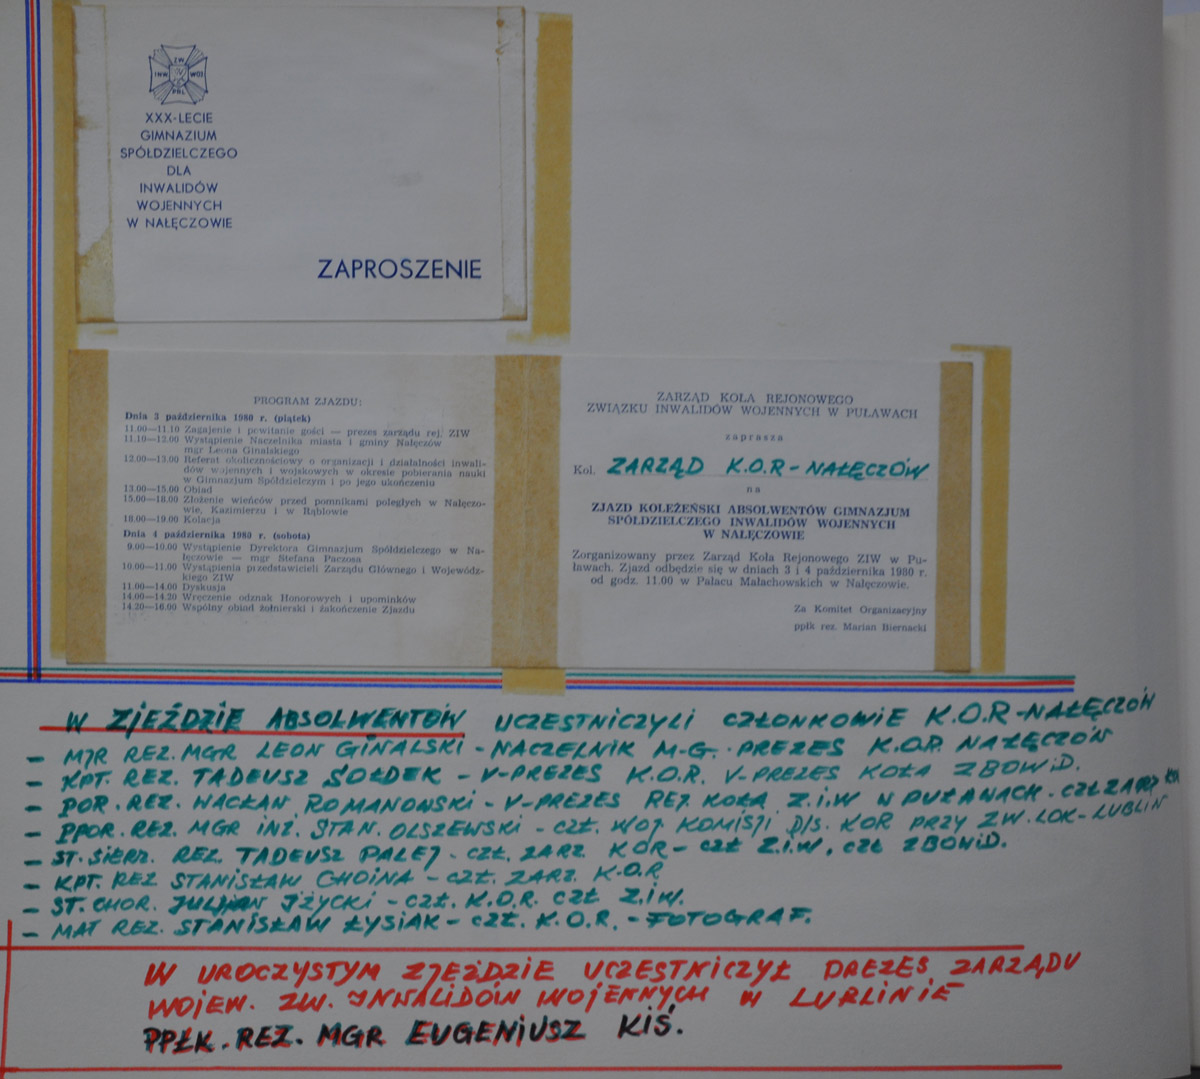 ZW
INW WOJ
PRL
XXX-LECIE
GIMNAZIUM
SPÓŁDZIELCZEGO
DLA
INWALIDÓW
WOJENNYCH
W NAŁĘCZOWIE
ZAPROSZENIE
PROGRAM ZJAZDU:
Dnia 3 października 1980 r. (piątek)
11.00—11.10 Zagajenie i powitanie gości — prezes zarządu rej. ZIW
11.10—12.00 Wystąpienie Naczelnika miasta i gminy Nałęczów
mgr Leona Ginalskiego
12.00—13.00 Referat okolicznościowy o organizacji i działalności inwali-
dów wojennych i wojskowych w okresie pobierania nauki
w Gimnazjum Spółdzielczym i po jego ukończeniu
13.00—15.00 Obiad
15.00—18.00 Złożenie wieńców przed pomnikami poległych w Nałęczo-
wie, Kazimierzu i w Rąblowie
18.00—19.00 Kolacja
Dnia 4 października 1980 r. (sobota)
9.00—10.00 Wystąpienie Dyrektora Gimnazjum Spółdzielczego w Na-
łęczowie — mgr Stefana Paczosa
10.00—11.00 Wystąpienia przedstawicieli Zarządu Głównego i Wojewódz-
kiego ZIW
11.00—14.00 Dyskusja
14.00—14.20 Wręczenie odznak Honorowych i upominków
14.20—16.00 Wspólny obiad żołnierski i zakończenie Zjazdu
ZARZĄD KOŁA REJONOWEGO
ZWIĄZKU INWALIDÓW WOJENNYCH W PUŁAWACH
zaprasza
Kol. ZARZĄD K.O.R-NAŁĘCZÓW
na
ZJAZD KOLEŻEŃSKI ABSOLWENTÓW GIMNAZJUM
SPÓŁDZIELCZEGO INWALIDÓW WOJENNYCH
W NAŁĘCZOWIE
Zorganizowany przez Zarząd Koła Rejonowego ZIW w Pu-
ławach. Zjazd odbędzie się w dniach 3 i 4 października 1980 r.
od godz. 11.00 w Pałacu Małachowskich w Nałęczowie.
Za Komitet Organizacyjny
ppłk rez. Marian Biernacki
W ZJEŹDZIE ABSOLWENTÓW UCZESTNICZYLI CZŁONKOWIE K.O.R-NAŁĘCZÓW
- MJR REZ. MGR LEON GINALSKI - NACZELNIK M-G. PREZES K.O.R. NAŁĘCZÓW
- KPT. REZ. TADEUSZ SOŁDEK - V-PREZES K.O.R. V-PREZES KOŁA ZBOWiD.
- POR. REZ. WACŁAW ROMANOWSKI - V-PREZES REJ. KOŁA Z.i.W W PUŁAWACH. CZŁ ZARZ
- PPOR. REZ. MGR INŻ. STAN. OLSZEWSKI - CZŁ. WOJ KOMISJI D/S. KOR PRZY ZW. LOK-LUBLIN
- ST. SIERŻ. REZ. TADEUSZ PALEJ - CZŁ. ZARZ KOR - CZŁ Z.I.W, CZŁ ZBOWiD.
- KPT. REZ STANISŁAW CHOINA - CZŁ. ZARZ. K.O.R
- ST. CHOR. JULJAN IŻYCKI - CZŁ. K.O.R. CZŁ Z.I.W.
- MAT REZ. STANISŁAW ŁYSIAK - CZŁ. K.O.R. - FOTOGRAF.
W UROCZYSTYM ZJEŹDZIE UCZESTNICZYŁ PREZES ZARZĄDU
WOJEW. ZW. INWALIDÓW WOJENNYCH W LUBLINIE
PPŁK. REZ. MGR EUGENIUSZ KIŚ.